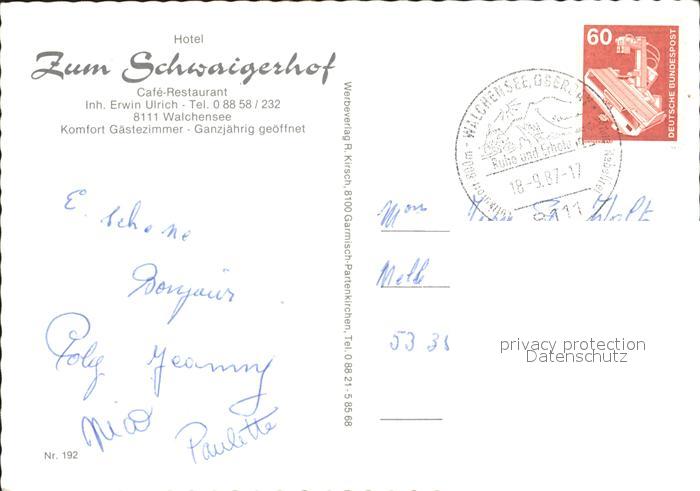 Hotel
Zum Schwaigerhof
Café-Restaurant
Inh. Erwin Ulrich - Tel. 0 88 58 / 232
8111 Walchensee
Komfort Gästezimmer - Ganzjährig geöffnet
E. schone
Bonjour
Poly Jeanny
Nico Paulette
Nr. 192
Werbeverlag R. Kirsch, 8100 Garmisch-Partenkirchen, Tel. 0 88 21 - 5 85 68
60
DEUTSCHE BUNDESPOST
WALCHENSEE, OBERB
Ruhe und Erholu
18-9.87-17
8111
Mon
53 38
privacy protection
Datenschutz